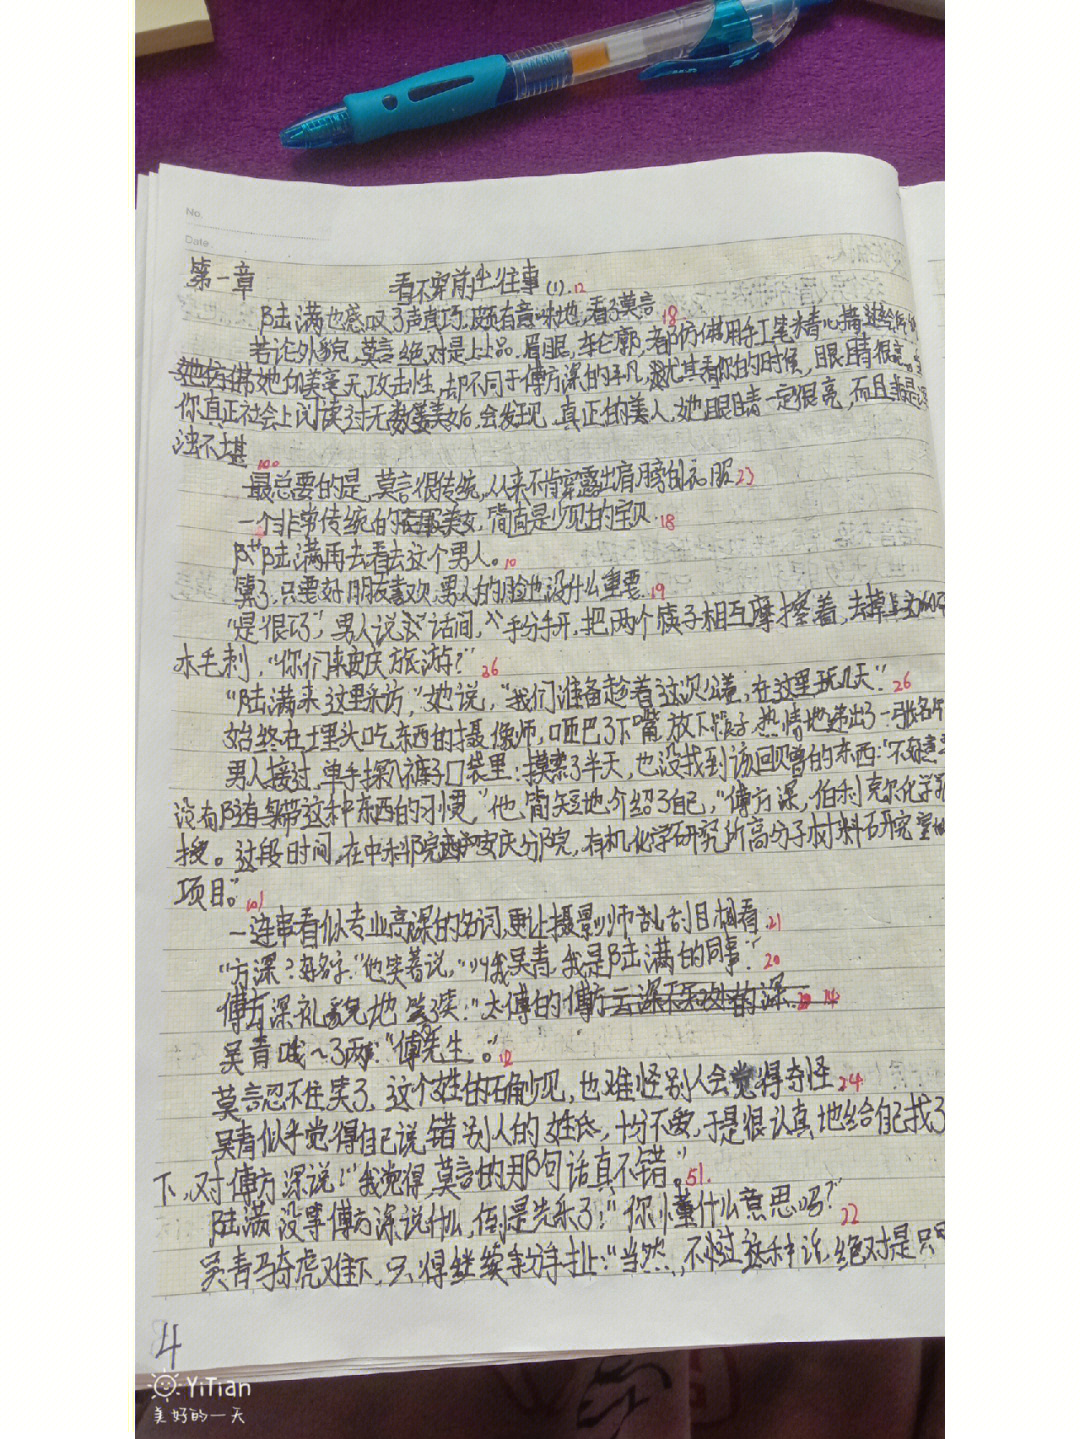 No.
Date.
第一章 看不穿前尘往事(1). 12
陆满也感叹了声真巧,颇有意味地,看了莫言 18
若论外貌,莫言绝对是上上品.眉眼,轮廓,都仿佛用手工笔精心描
她的美毫无攻击性,却不同于傅方深的平凡,尤其看你的时候,眼睛很亮。
你真正社会上阅读过无数美女后,会发现,真正的美人,她眼睛一定很亮,而且非是
浊不堪 100
最总要的是,莫言很传统,从来不肯穿露出肩膀的衣服 23
一个非常传统的美女,简直是少见的宝贝. 18
陆满再去看去这个男人。10
算了,只要好朋友喜欢,男人的脸也没什么重要. 19
“是很巧”,男人说话间,手分开,把两个筷子相互摩擦着,去掉上边的
木毛刺,“你们来安庆旅游?” 26
“陆满来这里采访,”她说,“我们准备趁着这次公差,在这里玩几天.” 26
始终在埋头吃东西的摄像师,咂巴了下嘴,放下筷子,热情地递出了一张名片
男人接过,单手探入裤子口袋里:摸索了半天,也没找到该回赠的东西:“不好意
没有随身带这种东西的习惯,”他,简短地介绍了自己,“傅方深,伯利克尔化学系
授。这段时间,在中科院安庆分院,有机化学研究所高分子材料研究室做
项目。” 101
一连串看似专业高深的名词,更让摄影师刮目相看. 21
“方深?好名字.”他笑着说,“我吴青,我是陆满的同事.” 20
傅方深礼貌地笑了笑:“太傅的傅 云深不知处的深. 14
吴青哦~了两声:“傅先生。” 12
莫言忍不住笑了,这个姓的确少见,也难怪别人会觉得奇怪. 24
吴青似乎觉得自己说错别人的姓氏,十分不爽,于是很认真地给自己找了
下,对傅方深说:“我觉得,莫言的那句话真不错。” 51.
陆满没等傅方深说什么,倒是先乐了:“你懂什么意思吗?” 22
吴青骑虎难下,只得继续手扯:“当然,不过这种话,绝对是只
4
YiTian
美好的一天